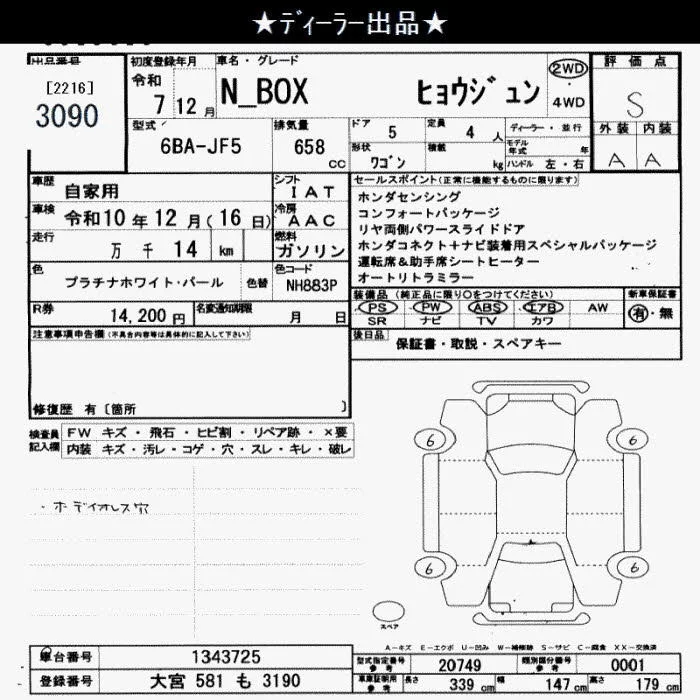 ★ディーラー出品★
出品番号
[2216]
3090
初度登録年月
令和
7 12 月
車名・グレード
N_BOX ヒョウジュン
2WD
・
4WD
評価点
S
外装 内装
A A
型式
6BA-JF5
排気量
658
cc
ドア
5
定員
4 人
形状
ワゴン
積載
kg
ディーラー・並行
モデル年式 年
ハンドル 左・右
車歴
自家用
シフト
IAT
車検
令和10年12月(16日)
冷房
AAC
走行
万 千 14 km
燃料
ガソリン
色
プラチナホワイト・パール
色替
色コード
NH883P
R券
14,200 円
名変通知期限
月 日
セールスポイント(正常に機能するものに限ります)
ホンダセンシング
コンフォートパッケージ
リヤ両側パワースライドドア
ホンダコネクト+ナビ装着用スペシャルパッケージ
運転席&助手席シートヒーター
オートリトラミラー
装備品(純正品に限り○をつけてください)
PS PW ABS エアB AW
SR ナビ TV カワ
新車保証書
有・無
後日品
保証書・取説・スペアキー
注意事項申告欄(不具合内容等は具体的に記入して下さい)
修復歴 有〔箇所 〕
検査員
記入欄
FW キズ・飛石・ヒビ割・リペア跡・×要
内装 キズ・汚レ・コゲ・穴・スレ・キレ・破レ
6 6
6 6
スペア
A-キズ E-エクボ U-凹み W-補修跡 S-サビ C-腐食 XX-交換済
車台番号
1343725
登録番号
大宮 581 も 3190
型式指定番号
参考
20749
類別区分番号
参考
0001
車庫証明用
参考
長さ
339 cm
幅
147 cm
高さ
179 cm